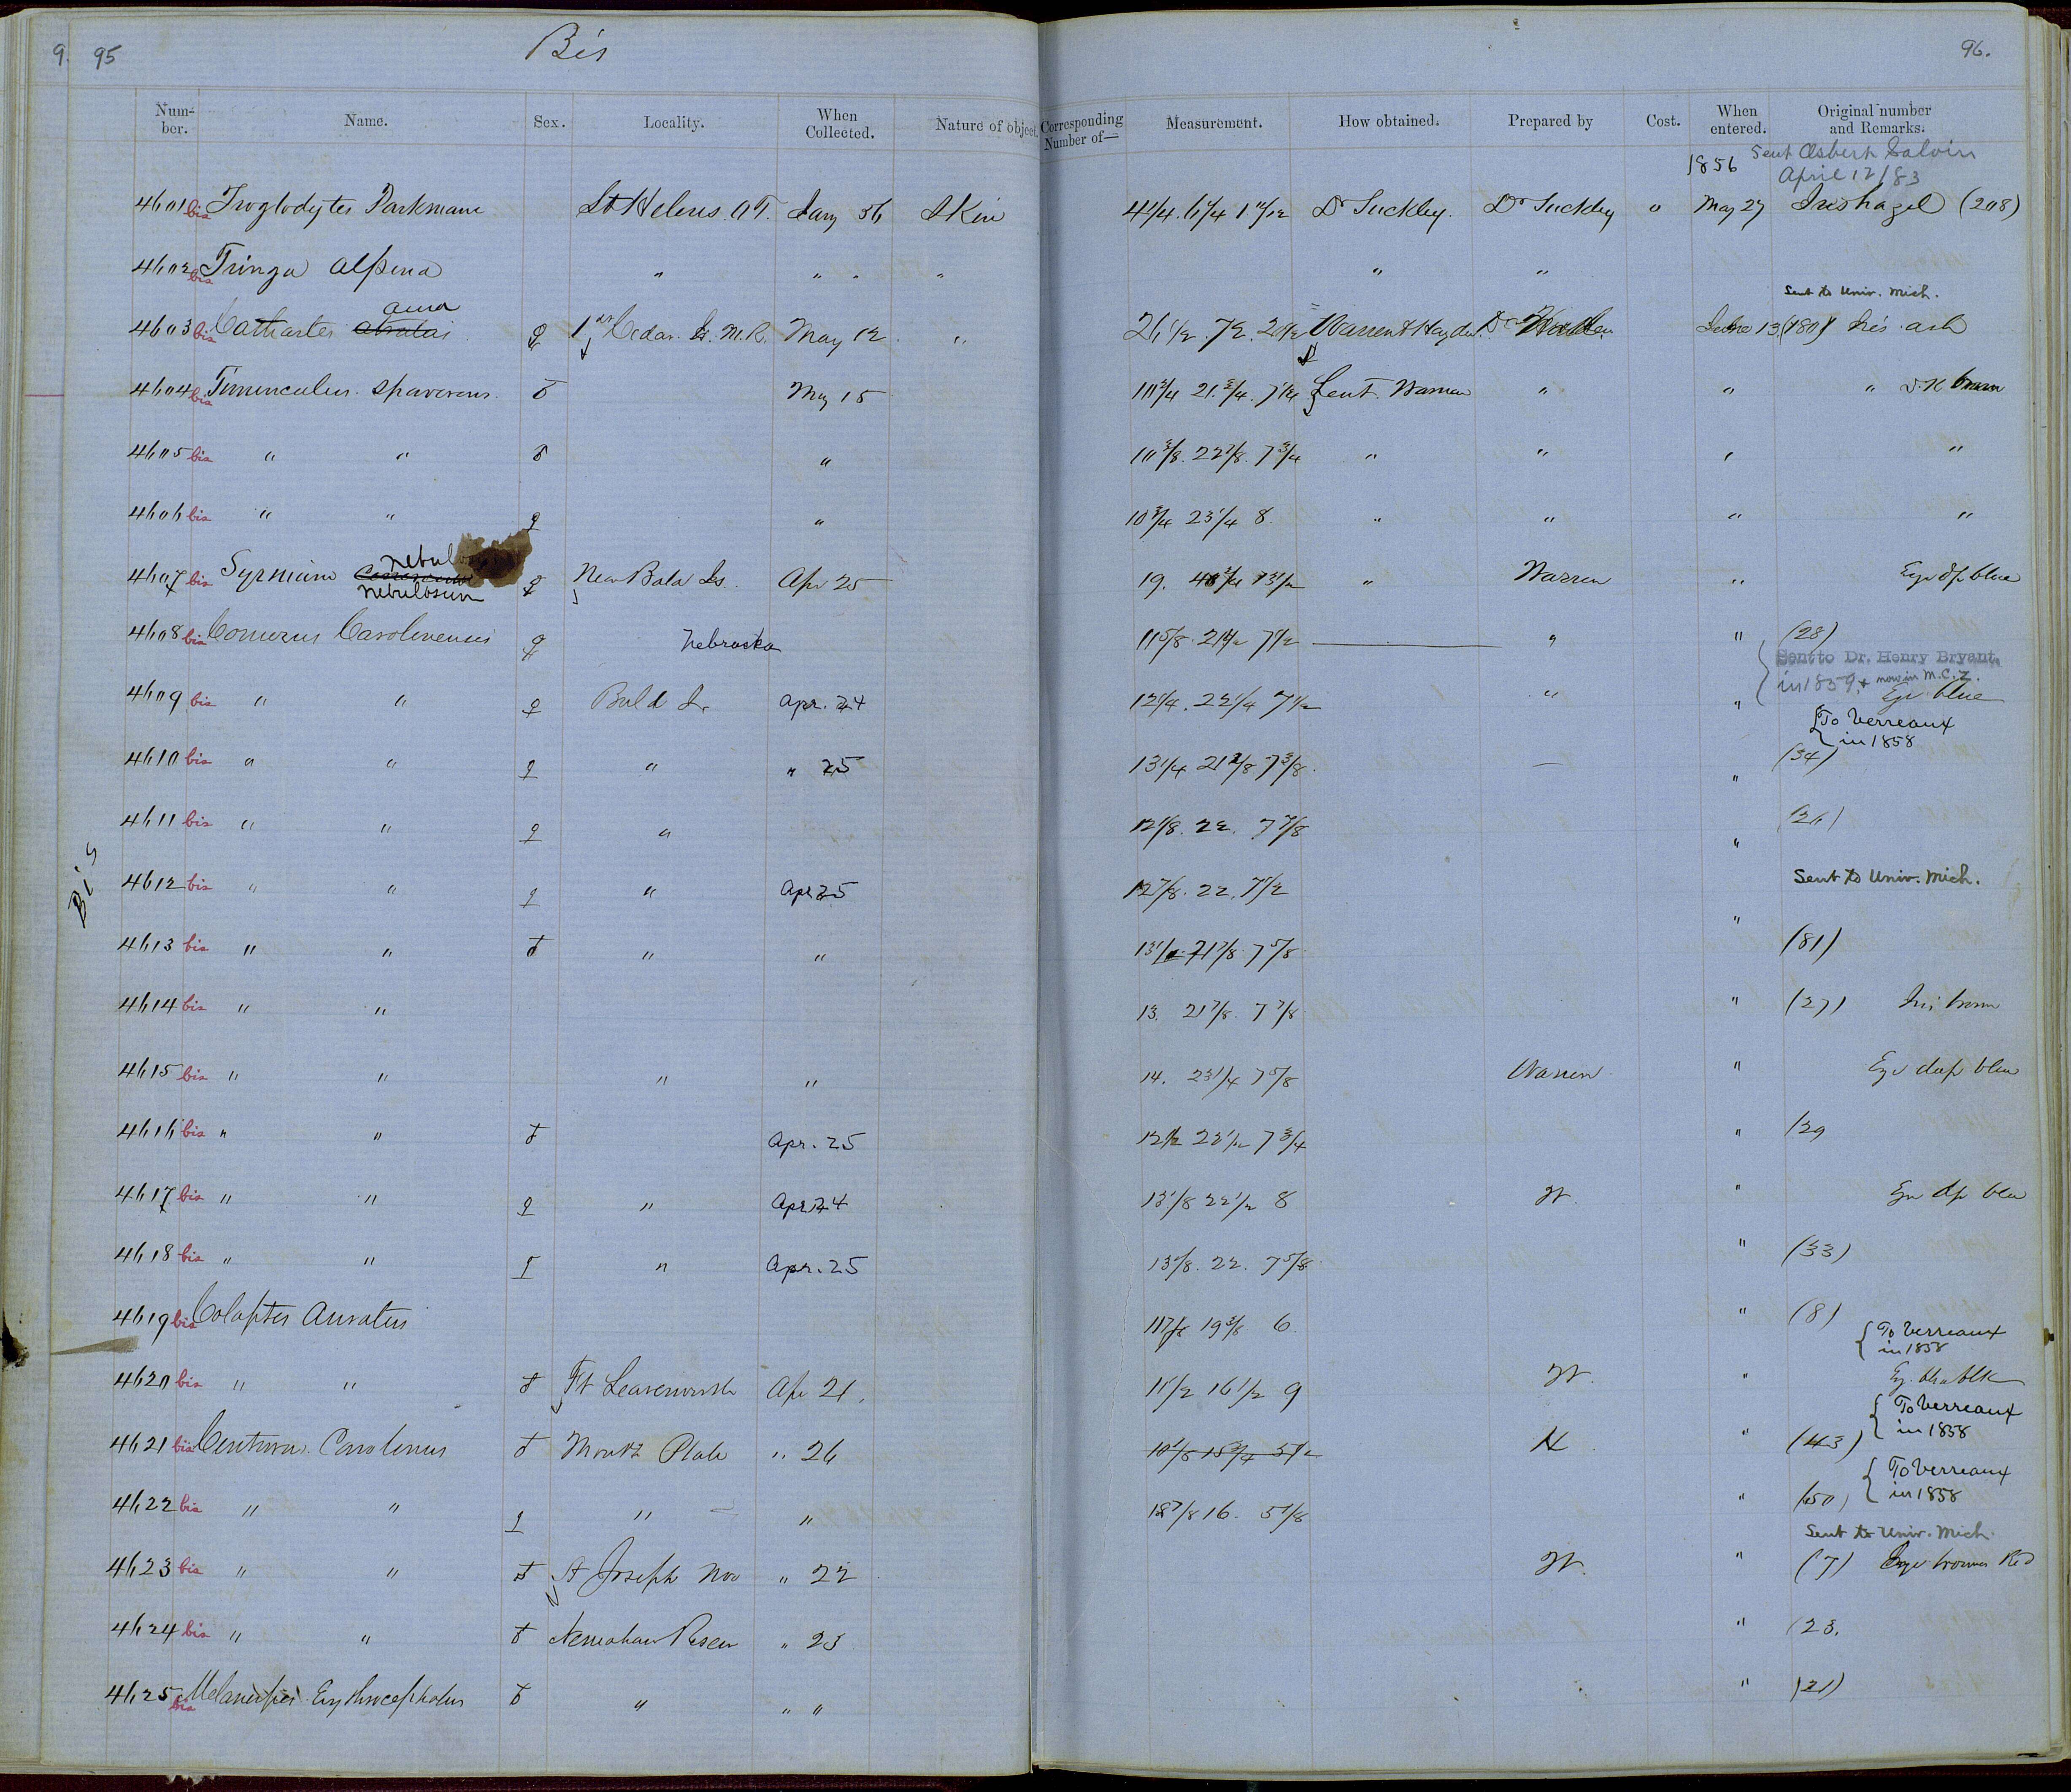 9. 95 Bis 96.
Num-ber. Name. Sex. Locality. When Collected. Nature of object. Corresponding Number of— Measurement. How obtained. Prepared by Cost. When entered. Original number and Remarks.
1856 Sent Osbert Salvin
April 12/83
4601 bis Troglodytes Parkmani St Helens. O.T. Jany 56 Skin 4 1/4. 6 1/4 1 11/12 Dr Suckley. Dr Suckley " May 27 Iris hazel (208)
4602 bis Tringa alpina " " " " " "
Sent to Univ. Mich.
aura
4603 bis Cathartes atratus ♀ Cedar Is. M.R. May 12 " 26 1/2. 72. 20 1/2 Warren & Hayden Dr June 13 (180) Iris ash
4604 bis Tinnunculus sparverius ♂ May 15 10 3/4 21 3/4. 7 1/4 Lieut. Warren " " " D.K brown
4605 bis " " ♂ " 10 3/8. 22 7/8. 7 3/4 " " " "
4606 bis " " ♀ " 10 3/4 23 1/4 8 " " " "
nebul
4607 bis Syrnium ♀ Near Bald Is. Apr 25 19. 13 1/2 " Warren " Eye dp blue
nebulosum
4608 bis Conurus Carolinensis ♀ Nebraska 11 5/8. 21 1/2 7 1/2 " " (28)
Sent to Dr. Henry Bryant
in 1859, + now in M.C.Z.
4609 bis " " ♀ Bald Is. Apr. 24 12 1/4. 22 1/4 7 1/2 " " Eye blue
{To Verreaux
in 1858
4610 bis " " ♀ " " 25 13 1/4 21 7/8 7 3/8. — " (34)
4611 bis " " ♀ " 12 1/8. 22. 7 7/8 " (26)
4612 bis " " ♀ " Apr 25 12 7/8. 22. 7 1/2 " Sent to Univ. Mich.
Bis
4613 bis " " ♂ " " 21 7/8. 7 5/8 (81)
4614 bis " " 13. 21 7/8. 7 7/8 " (27) Iris brown
4615 bis " " " " 14. 23 1/4 7 5/8 Warren " Eye deep blue
4616 bis " " ♂ Apr. 25 12 1/2 23 1/2 7 3/4 " (29
4617 bis " " ♀ " Apr 24 13 1/8 22 1/2 8 W. " Eye dp blue
4618 bis " " ♀ " Apr. 25 13 1/8. 22. 7 5/8 " (33)
4619 bis Colaptes Auratus 11 7/8 19 3/8 6 " (8)
{To Verreaux
in 1858
4620 bis " " ♂ Ft Leavenworth Apr 21. 11 1/2 16 1/2 9 W. "
{To Verreaux
in 1858
4621 bis Centurus Carolinus ♂ Mouth Platte " 26 10 1/8 15 3/4 5 1/2 H " (43)
{To Verreaux
in 1858
4622 bis " " ♀ " " 16. 5 1/8 " (50)
Sent to Univ. Mich.
4623 bis " " ♂ St Joseph Mo " 22 W. " (7) Eye brown Red
4624 bis " " ♂ Nemahaw River " 23 " (23.
4625 bis Melanerpes Erythrocephalus ♂ " " " " (21)